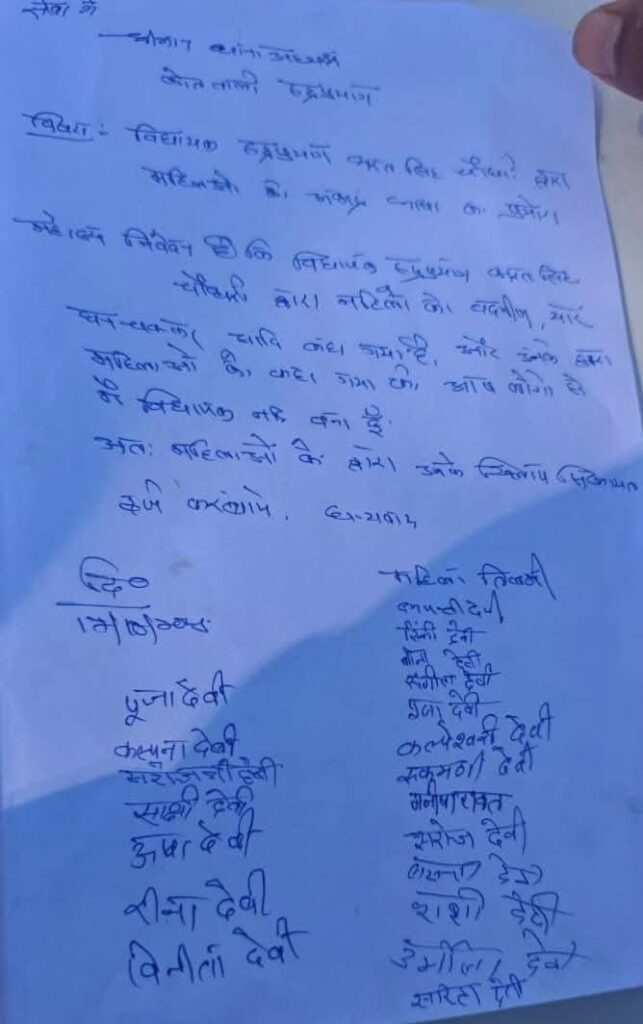 सेवा में
श्रीमान थाना अध्यक्ष
कोतवाली रुद्रप्रयाग
विषय:- विधायक रुद्रप्रयाग भरत सिंह चौधरी द्वारा
महिलाओं को अभद्र भाषा का प्रयोग
महोदय निवेदन है कि विधायक रुद्रप्रयाग भरत सिंह
चौधरी द्वारा महिला को बदमीज,
घनचक्कर कहा गया है, और उनके द्वारा
महिलाओं को कहा गया की आप लोगो से
मै विधायक नही बना हूँ.
अतः महिलाओं के द्वारा उनके खिलाप शिकायत
दर्ज करवाये. धन्यवाद
दि०
महिला
देवी
रिंकी देवी
देवी
देवी
पूजा देवी
देवी
कल्पना देवी
कल्पेश्वरी देवी
सरोजनी देवी
रुकमणी देवी
साक्षी देवी
मनीषा रावत
ऊषा देवी
सरोज देवी
देवी
रीना देवी
शशी देवी
विनीता देवी
उर्मीला देवी
सरिता देवी